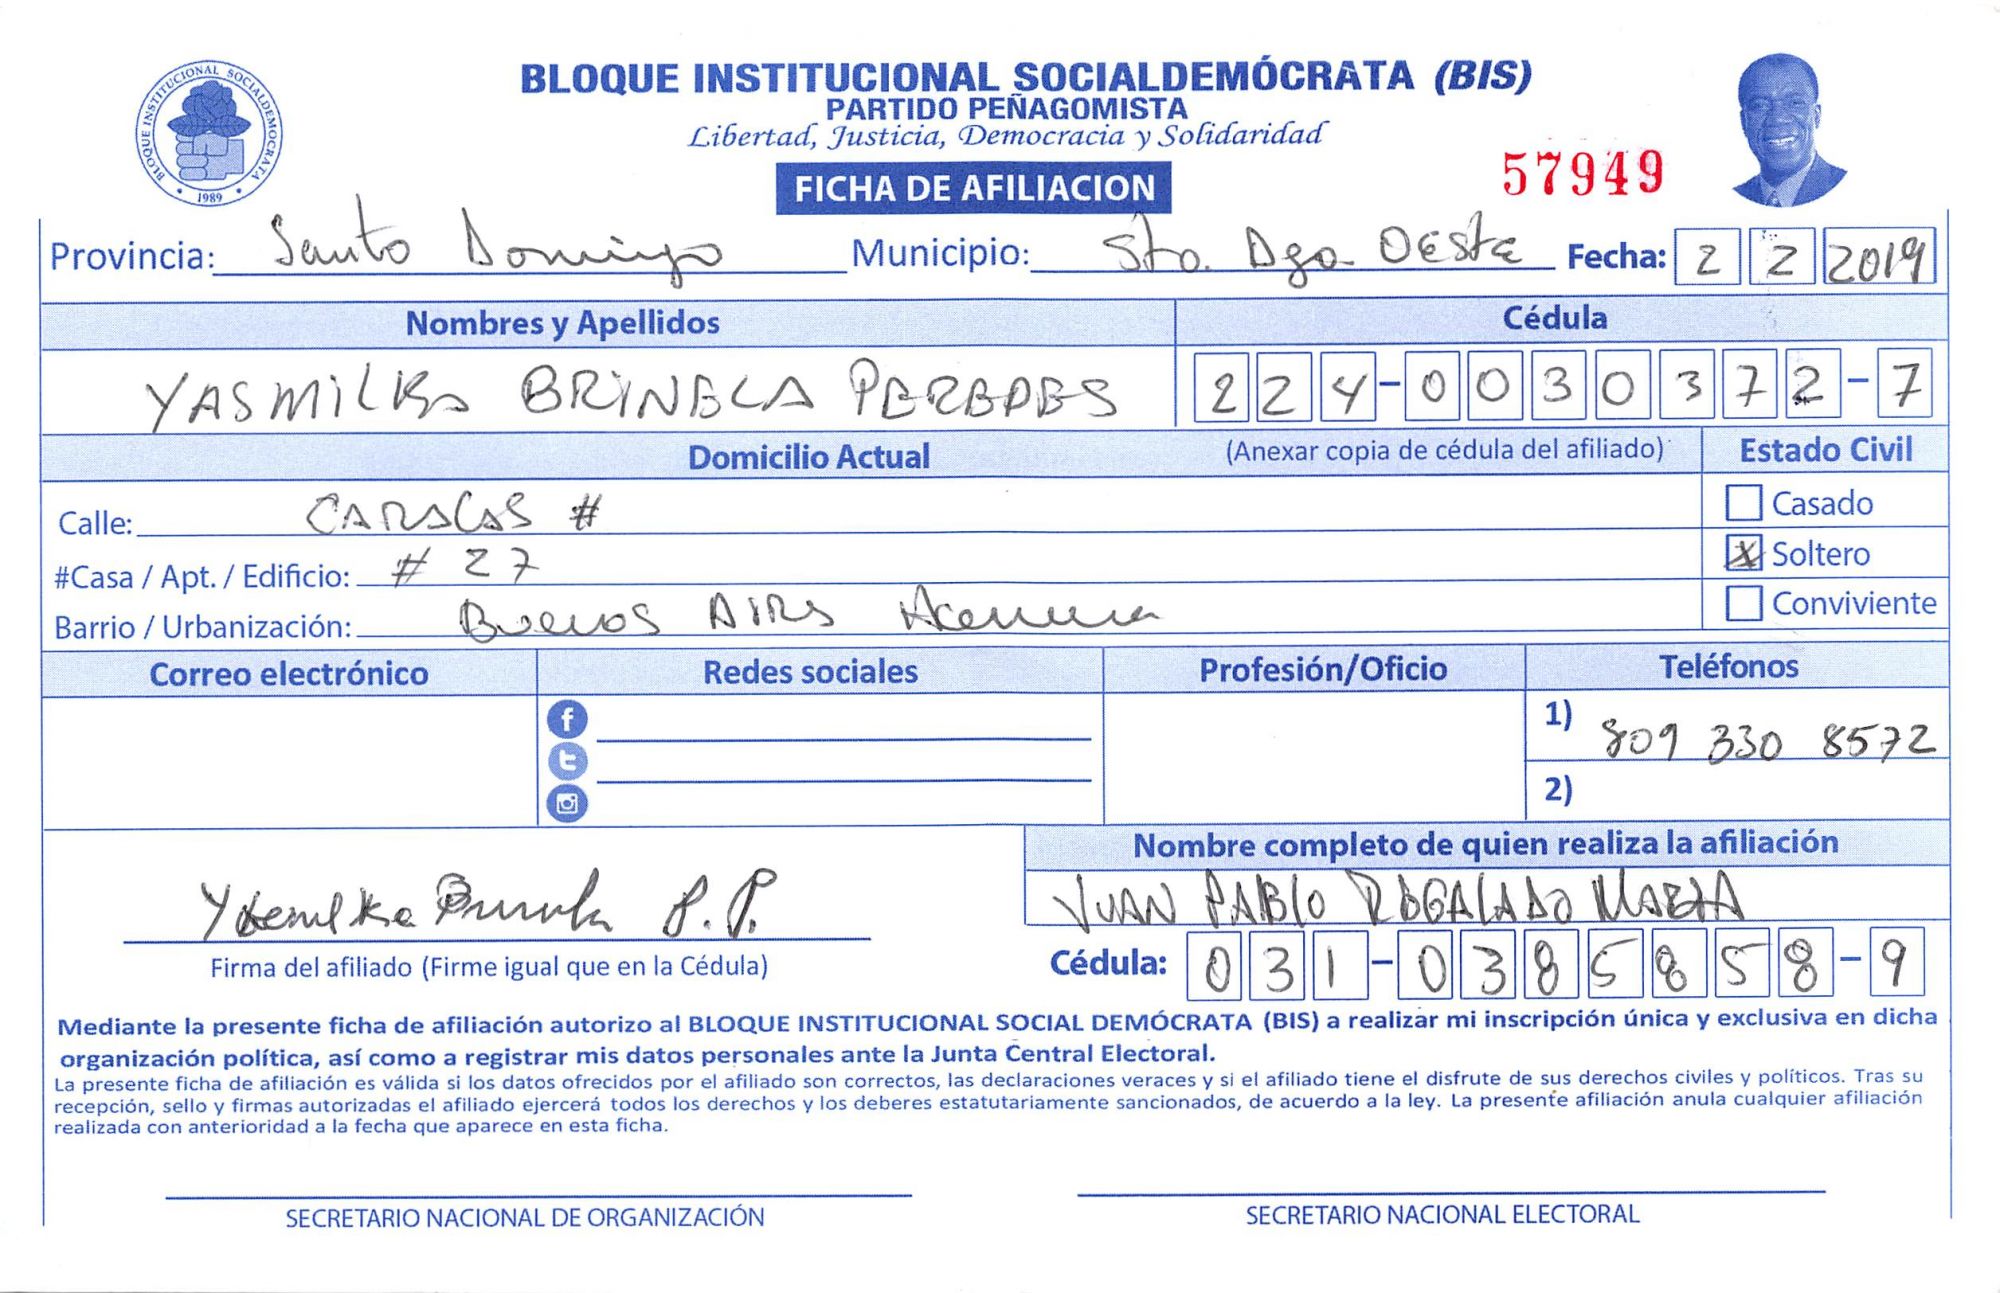 BLOQUE INSTITUCIONAL SOCIALDEMÓCRATA (BIS)
PARTIDO PEÑAGOMISTA
Libertad, Justicia, Democracia y Solidaridad
BLOQUE INSTITUCIONAL SOCIALDEMOCRATA
1989
FICHA DE AFILIACION
57949
Provincia: Santo Domingo Municipio: Sto. Dgo. OESte Fecha: 2 2 2019
Nombres y Apellidos Cédula
YASMILKA BRINELA PEREDES 224-0030372-7
Domicilio Actual (Anexar copia de cédula del afiliado) Estado Civil
Calle: CARACAS # Casado
#Casa / Apt. / Edificio: # 27 X Soltero
Barrio / Urbanización: Buenos AIRS Conviviente
Correo electrónico Redes sociales Profesión/Oficio Teléfonos
1) 809 330 8572
2)
Nombre completo de quien realiza la afiliación
JUAN PABLO REGALADO MARIA
P. P.
Firma del afiliado (Firme igual que en la Cédula) Cédula: 031-0385858-9
Mediante la presente ficha de afiliación autorizo al BLOQUE INSTITUCIONAL SOCIAL DEMÓCRATA (BIS) a realizar mi inscripción única y exclusiva en dicha
organización política, así como a registrar mis datos personales ante la Junta Central Electoral.
La presente ficha de afiliación es válida si los datos ofrecidos por el afiliado son correctos, las declaraciones veraces y si el afiliado tiene el disfrute de sus derechos civiles y políticos. Tras su
recepción, sello y firmas autorizadas el afiliado ejercerá todos los derechos y los deberes estatutariamente sancionados, de acuerdo a la ley. La presente afiliación anula cualquier afiliación
realizada con anterioridad a la fecha que aparece en esta ficha.
SECRETARIO NACIONAL DE ORGANIZACIÓN SECRETARIO NACIONAL ELECTORAL